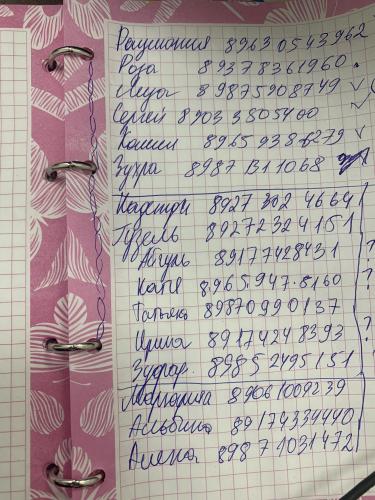 Раушания 89630543962
Роза 89378361960.
Луиза 89875908749 ✓
Сергей 89033805400
Камил 89659386279 ✓
Зухра 89871311068
Надежда 8927 302 4664
Гузель 89272324151
Айгуль 89177428431 ?
Катя 8965947.8160 ?
Татьяна 89870990137
Ирина 89174248393 ?
Зуфар. 89852495151
Маргарита 89061009239
Альбина 89174334440
Алена 89871031472